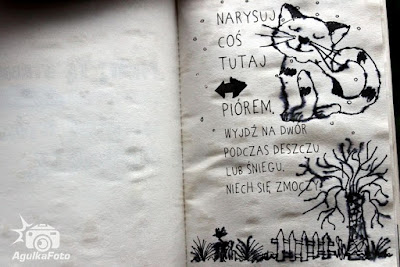 NARYSUJ
COŚ
TUTAJ
PIÓREM.
WYJDŹ NA DWÓR
PODCZAS DESZCZU
LUB ŚNIEGU.
NIECH SIĘ ZMOCZY
AgulkaFoto